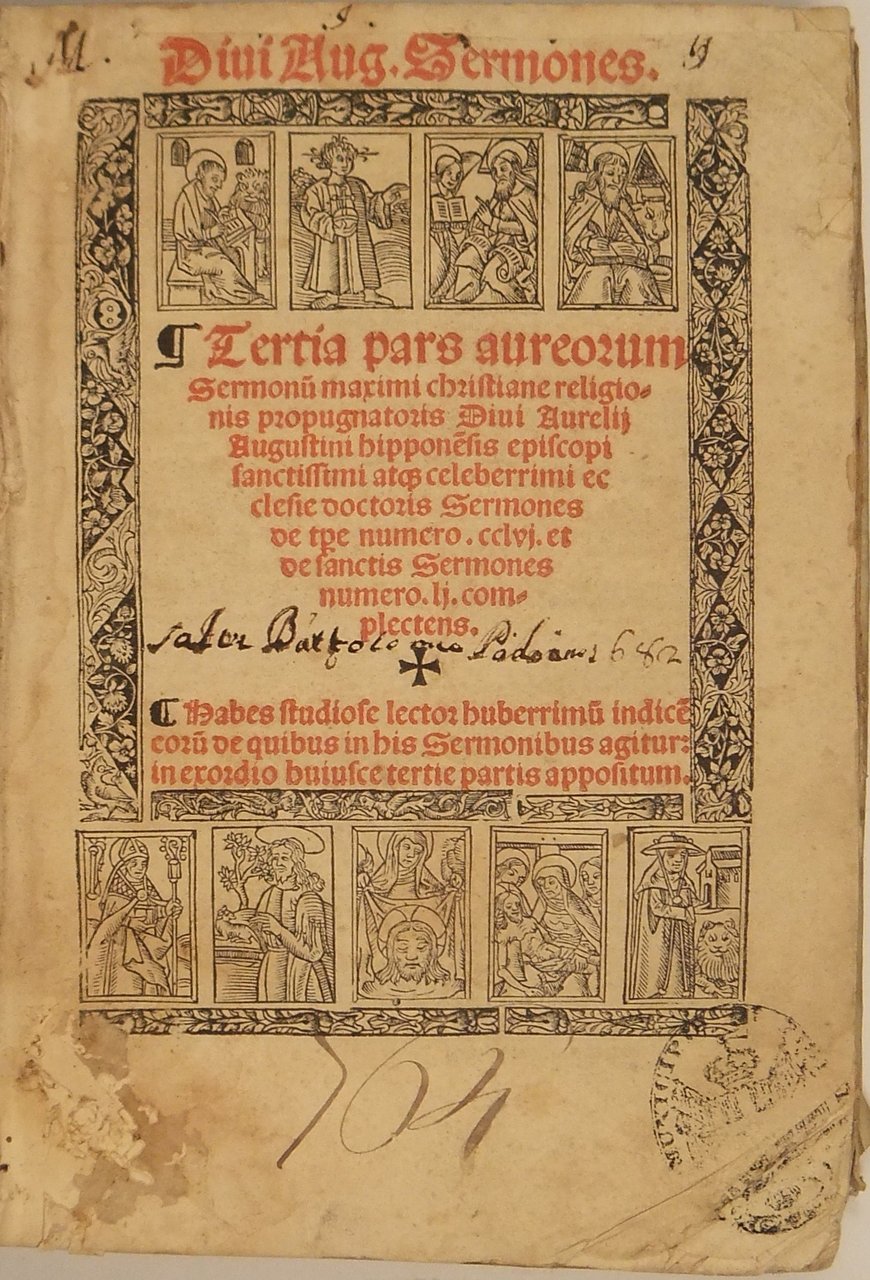 Diui Aug. Sermones.
¶ Tertia pars aureorum
Sermonũ maximi christiane religio-
nis propugnatoris Diui Aurelij
Augustini hipponẽsis episcopi
sanctissimi atqꝫ celeberrimi ec
clesie doctoris Sermones
de tp̃e numero. cclvj. et
de sanctis Sermones
numero. lj. com-
plectens.
¶ Habes studiose lector huberrimũ indicẽ
eorũ de quibus in his Sermonibus agitur:
in exordio huiusce tertie partis appositum.